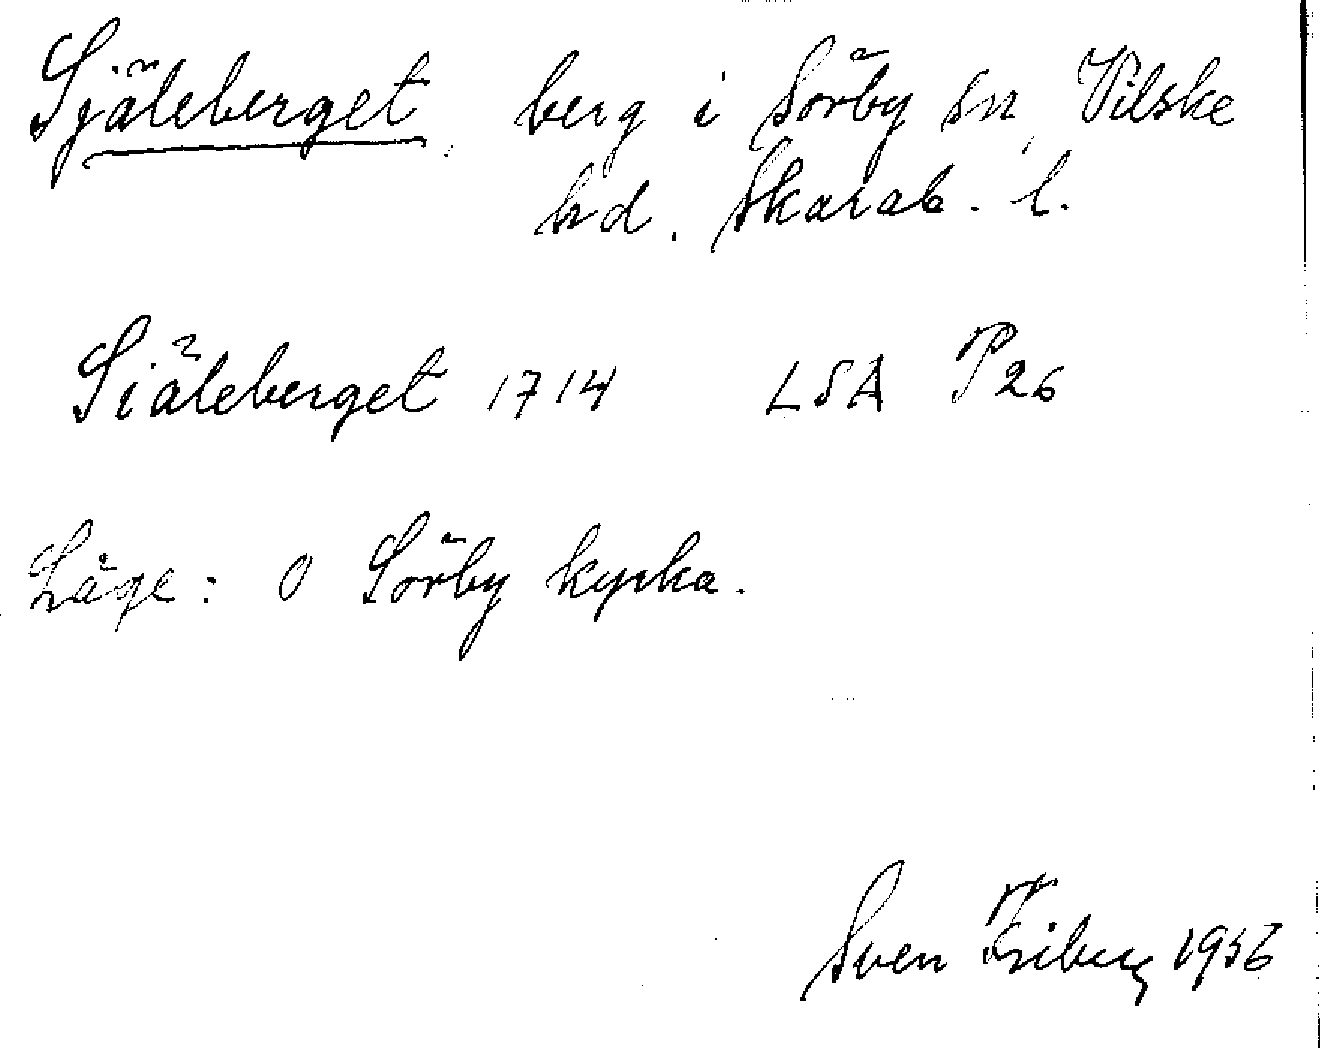 Själeberget, berg i Sörby sn, Vilske
hd. Skarab. l.
Siäleberget 1714 LSA P26
Läge: O Sörby kyrka.
Sven Friberg 1956